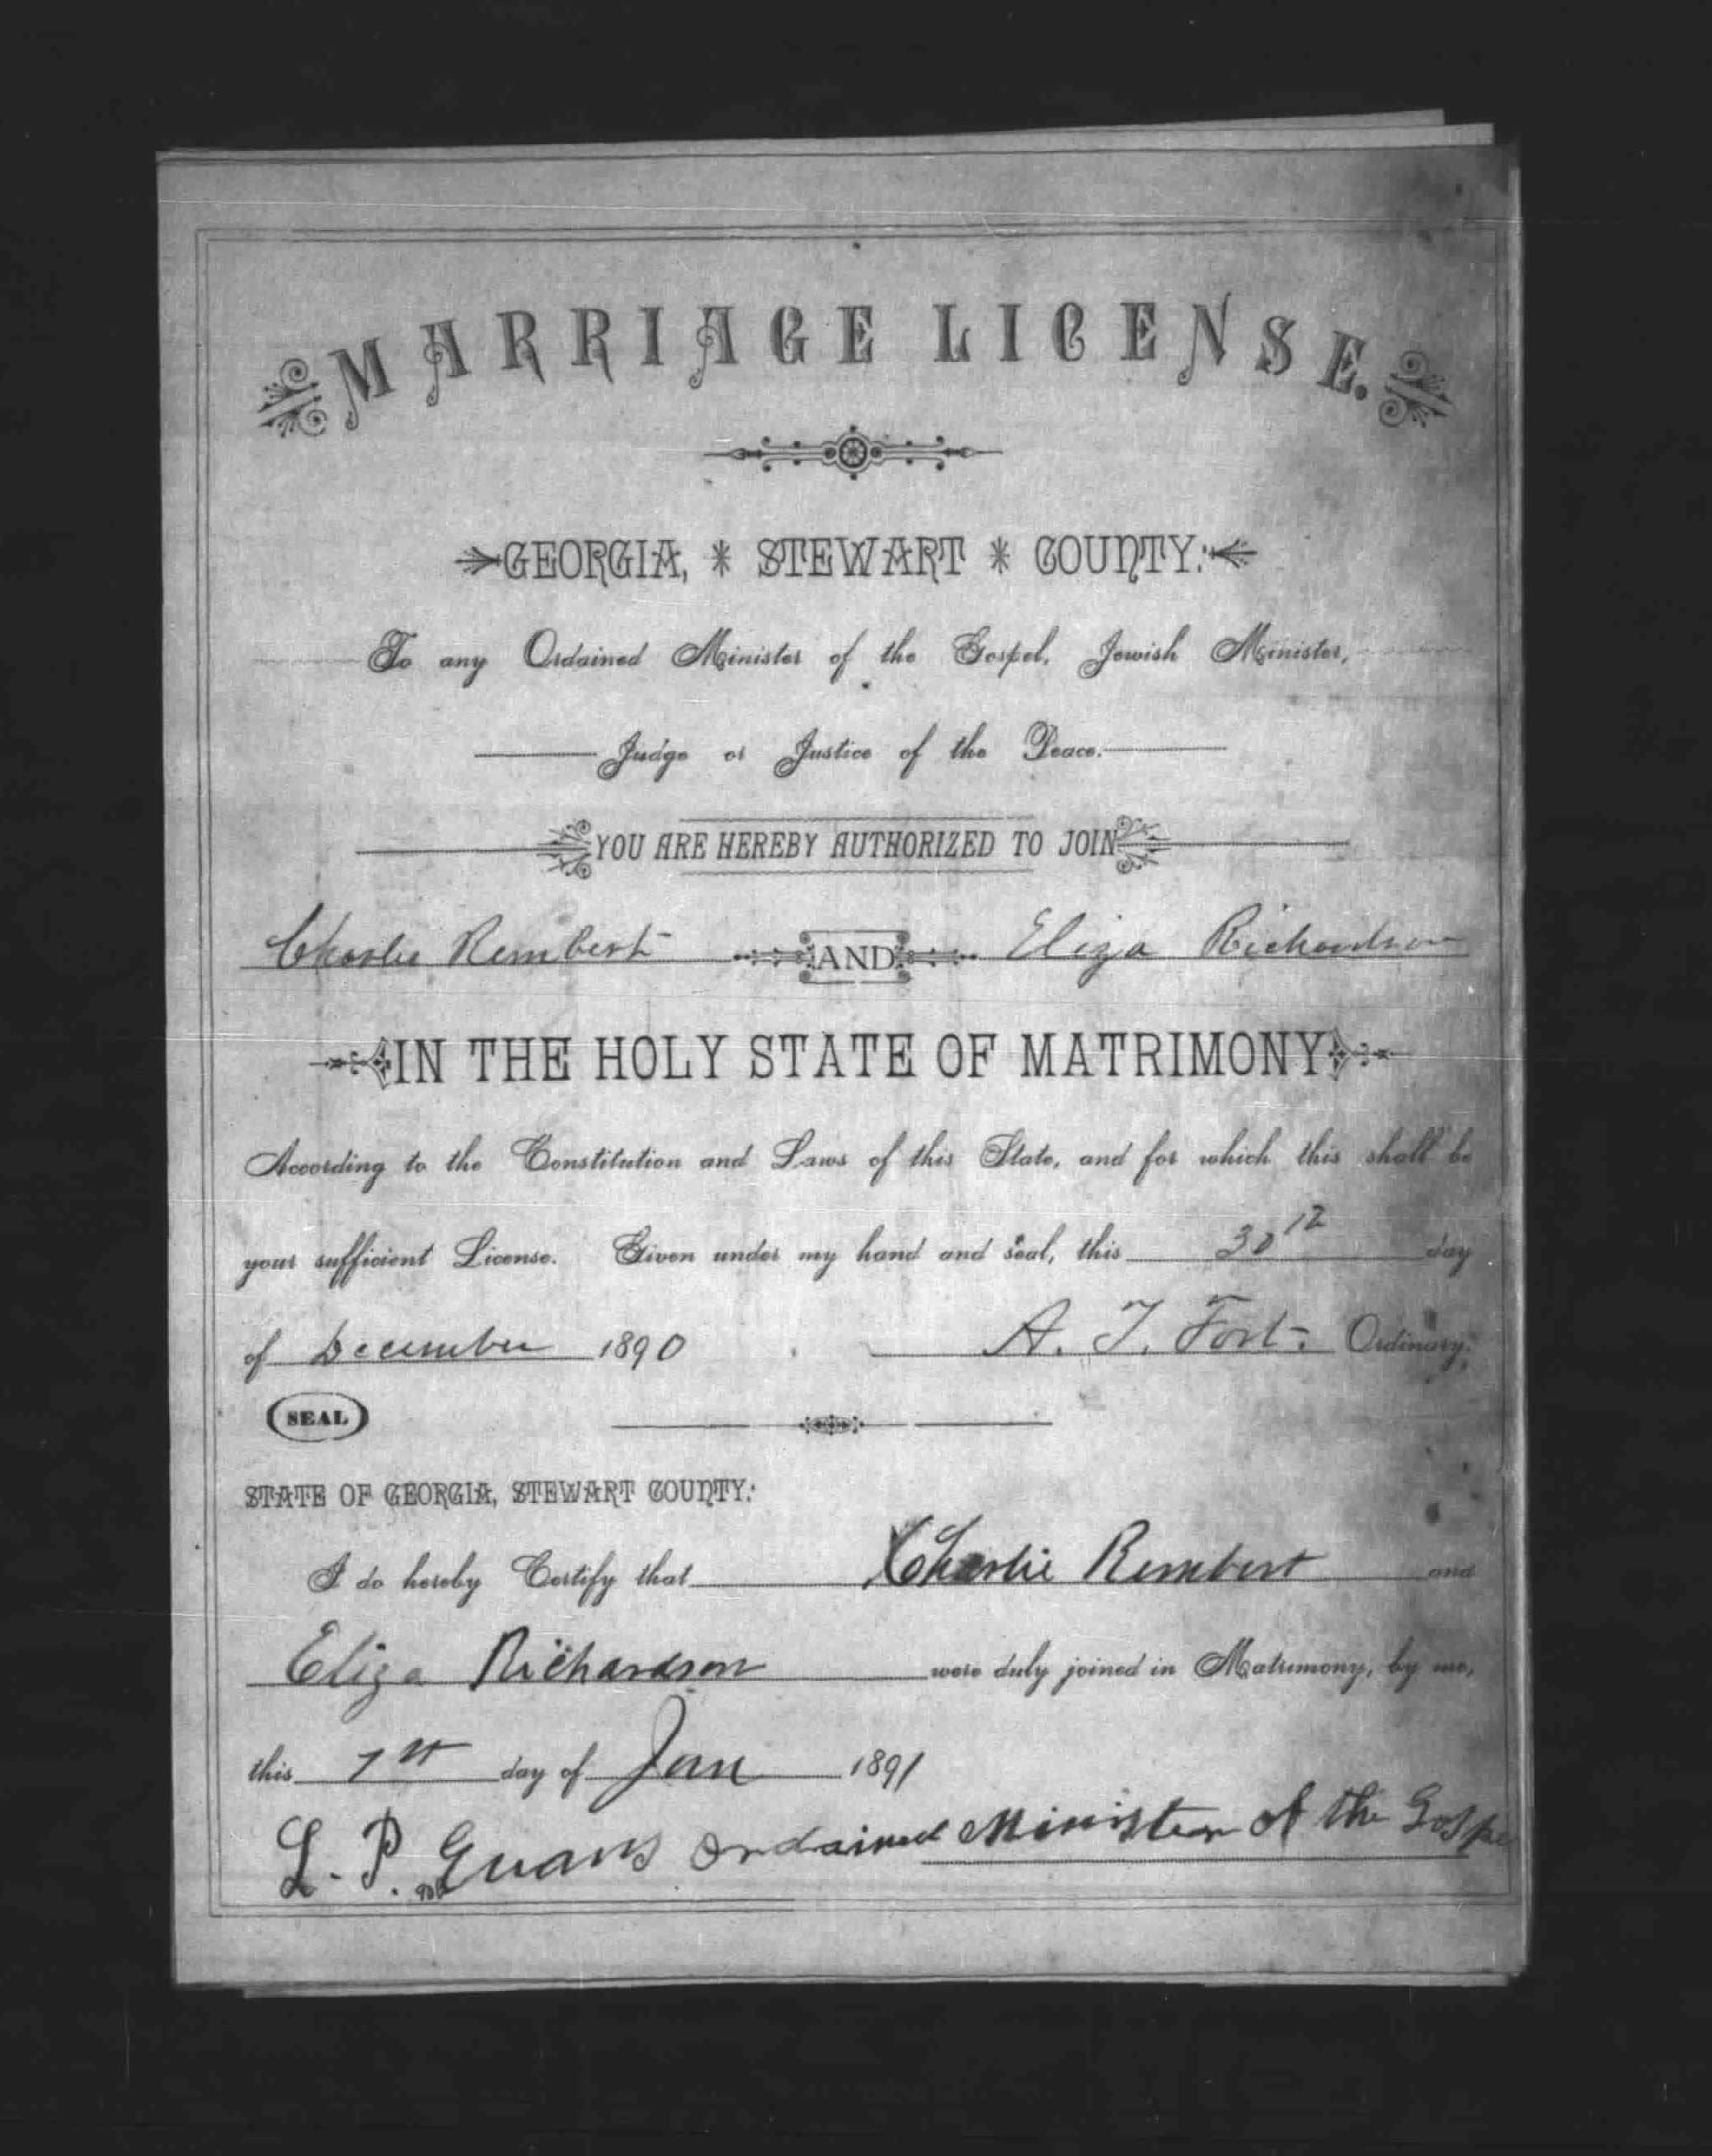 MARRIAGE LICENSE.
GEORGIA, * STEWART * COUNTY:
To any Ordained Minister of the Gospel, Jewish Minister,
Judge or Justice of the Peace.
YOU ARE HEREBY AUTHORIZED TO JOIN
Charlie Rembert AND Eliza Richardson
IN THE HOLY STATE OF MATRIMONY
According to the Constitution and Laws of this State, and for which this shall be
your sufficient License. Given under my hand and seal, this 30 day
of December 1890 A. T. Fort. Ordinary.
SEAL
STATE OF GEORGIA, STEWART COUNTY:
I do hereby Certify that Charlie Rembert and
Eliza Richardson were duly joined in Matrimony, by me,
this 1st day of Jan 1891
L. P. Evans ordained Minister of the Gospe